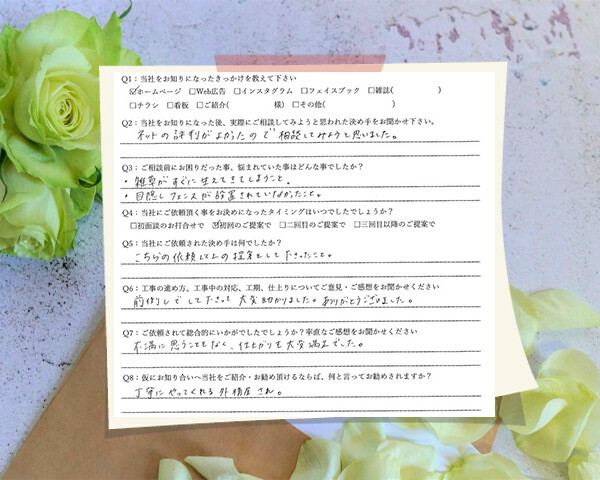 Q1：当社をお知りになったきっかけを教えて下さい
☑ホームページ □Web広告 □インスタグラム □フェイスブック □雑誌( )
□チラシ □看板 □ご紹介( 様) □その他( )
Q2：当社をお知りになった後、実際にご相談してみようと思われた決め手をお聞かせ下さい。
ネットの評判がよかったので相談してみようと思いました。
Q3：ご相談前にお困りだった事、悩まれていた事はどんな事でしたか？
・雑草がすぐに生えてきてしまうこと。
・目隠しフェンスが設置されていなかったこと。
Q4：当社にご依頼頂く事をお決めになったタイミングはいつでしたでしょうか？
□初面談のお打合せで ☑初回のご提案で □二回目のご提案で □三回目以降のご提案で
Q5：当社にご依頼された決め手は何でしたか？
こちらの依頼以上の提案をして下さったこと。
Q6：工事の進め方、工事中の対応、工期、仕上りについてご意見・ご感想をお聞かせください
前倒しでして下さって大変助かりました。ありがとうございました。
Q7：ご依頼されて総合的にいかがでしたでしょうか？率直なご感想をお聞かせください
不満に思うこともなく、仕上がりも大変満足でした。
Q8：仮にお知り合いへ当社をご紹介・お勧め頂けるならば、何と言ってお勧めされますか？
丁寧にやってくれる外構屋さん。